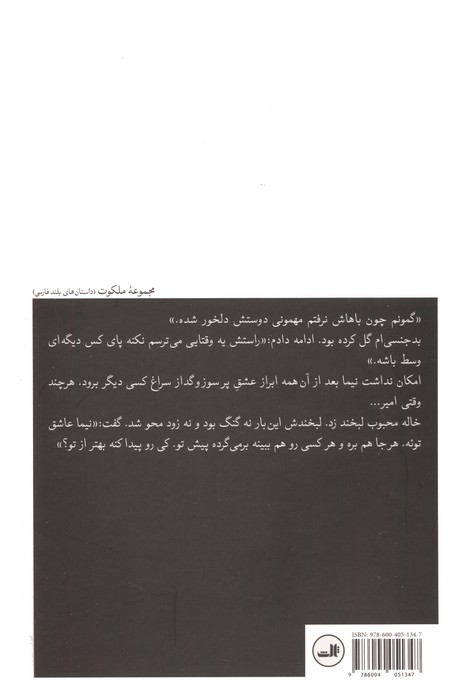 مجموعهٔ ملکوت (داستان‌های بلند فارسی)
«گمونم چون باهاش نرفتم مهمونی دوستش دلخور شده.»
بدجنسی‌ام گل کرده بود. ادامه دادم:«راستش یه وقتایی می‌ترسم نکنه پای کس دیگه‌ای
وسط باشه.»
امکان نداشت نیما بعد از آن همه ابراز عشقِ پرسوزوگداز سراغ کسی دیگر برود. هرچند
وقتی امیر...
خاله محبوب لبخند زد. لبخندش این‌بار نه گنگ بود و نه زود محو شد. گفت:«نیما عاشق
توئه. هرجا هم بره و هرکسی رو هم ببینه برمی‌گرده پیش تو. کی رو پیدا کنه بهتر از تو؟»
ISBN: 978-600-405-134-7
ثالث
9 786004 051347